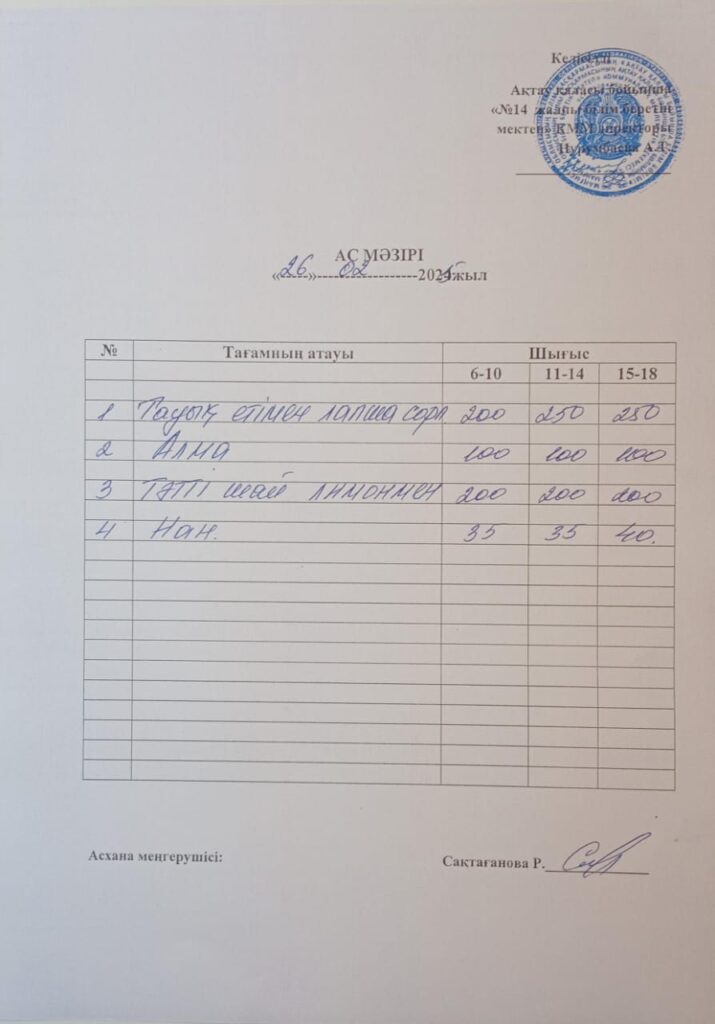 Келісілді
Ақтау қаласы бойынша
«№14 жалпы білім беретін
мектеп» КММ директоры
АС МӘЗІРІ
«26» 02 2025 жыл
№ Тағамның атауы Шығыс
6-10 11-14 15-18
1 Тауық етімен лапша сорп. 200 250 250
2 Алма 100 100 100
3 Тәтті шай лимонмен 200 200 200
4 Нан. 35 35 40.
Асхана меңгерушісі: Сақтағанова Р.